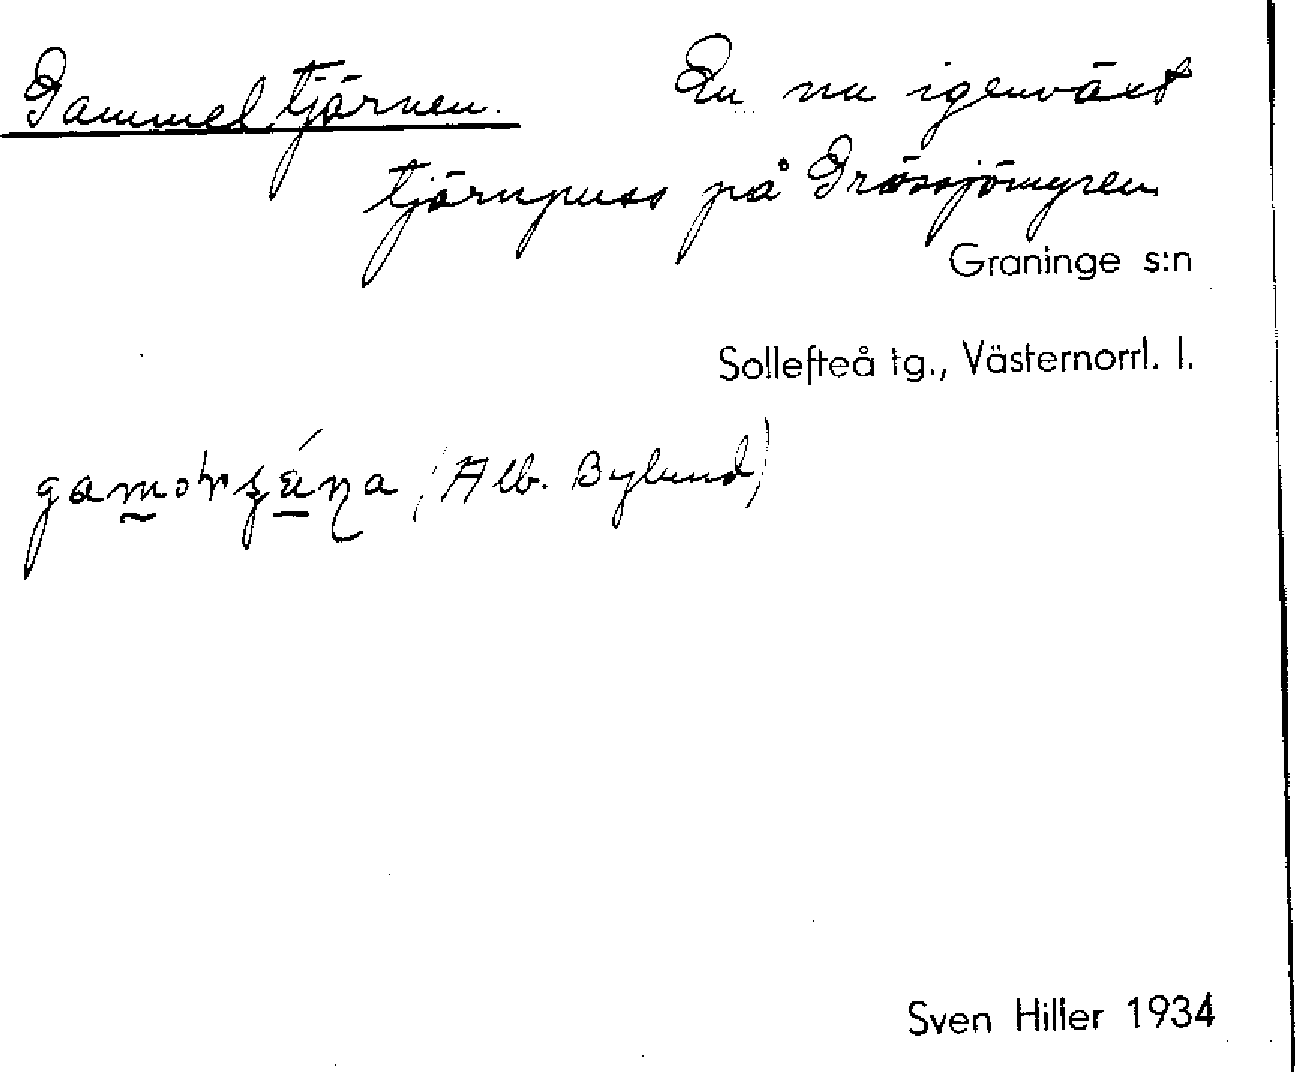 Gammeltjärnen. En nu igenväxt
tjärnpuss på Grässjömyren
Graninge s:n
Sollefteå tg., Västernorrl. l.
(Alb. Bylund)
Sven Hiller 1934